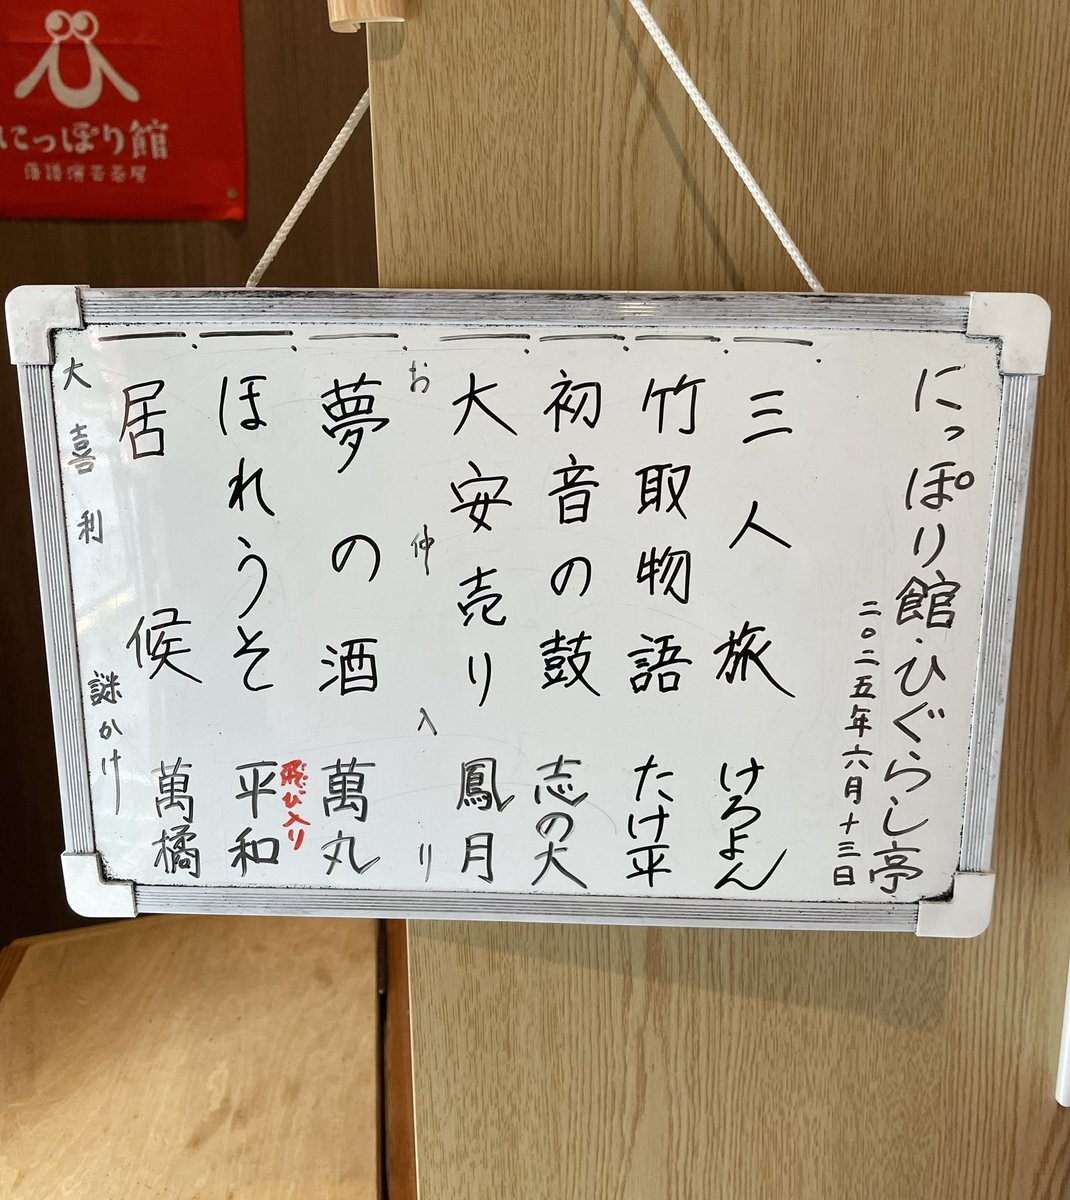 にっぽり館
落語演芸茶屋
にっぽり館・ひぐらし亭
二〇二五年六月十三日
一、三人旅 けろよん
一、竹取物語 たけ平
一、初音の鼓 志の大
一、大安売り 鳳月
お仲入り
一、夢の酒 萬丸
飛び入り
一、ほれうそ 平和
一、居候 萬橘
大喜利 謎かけ